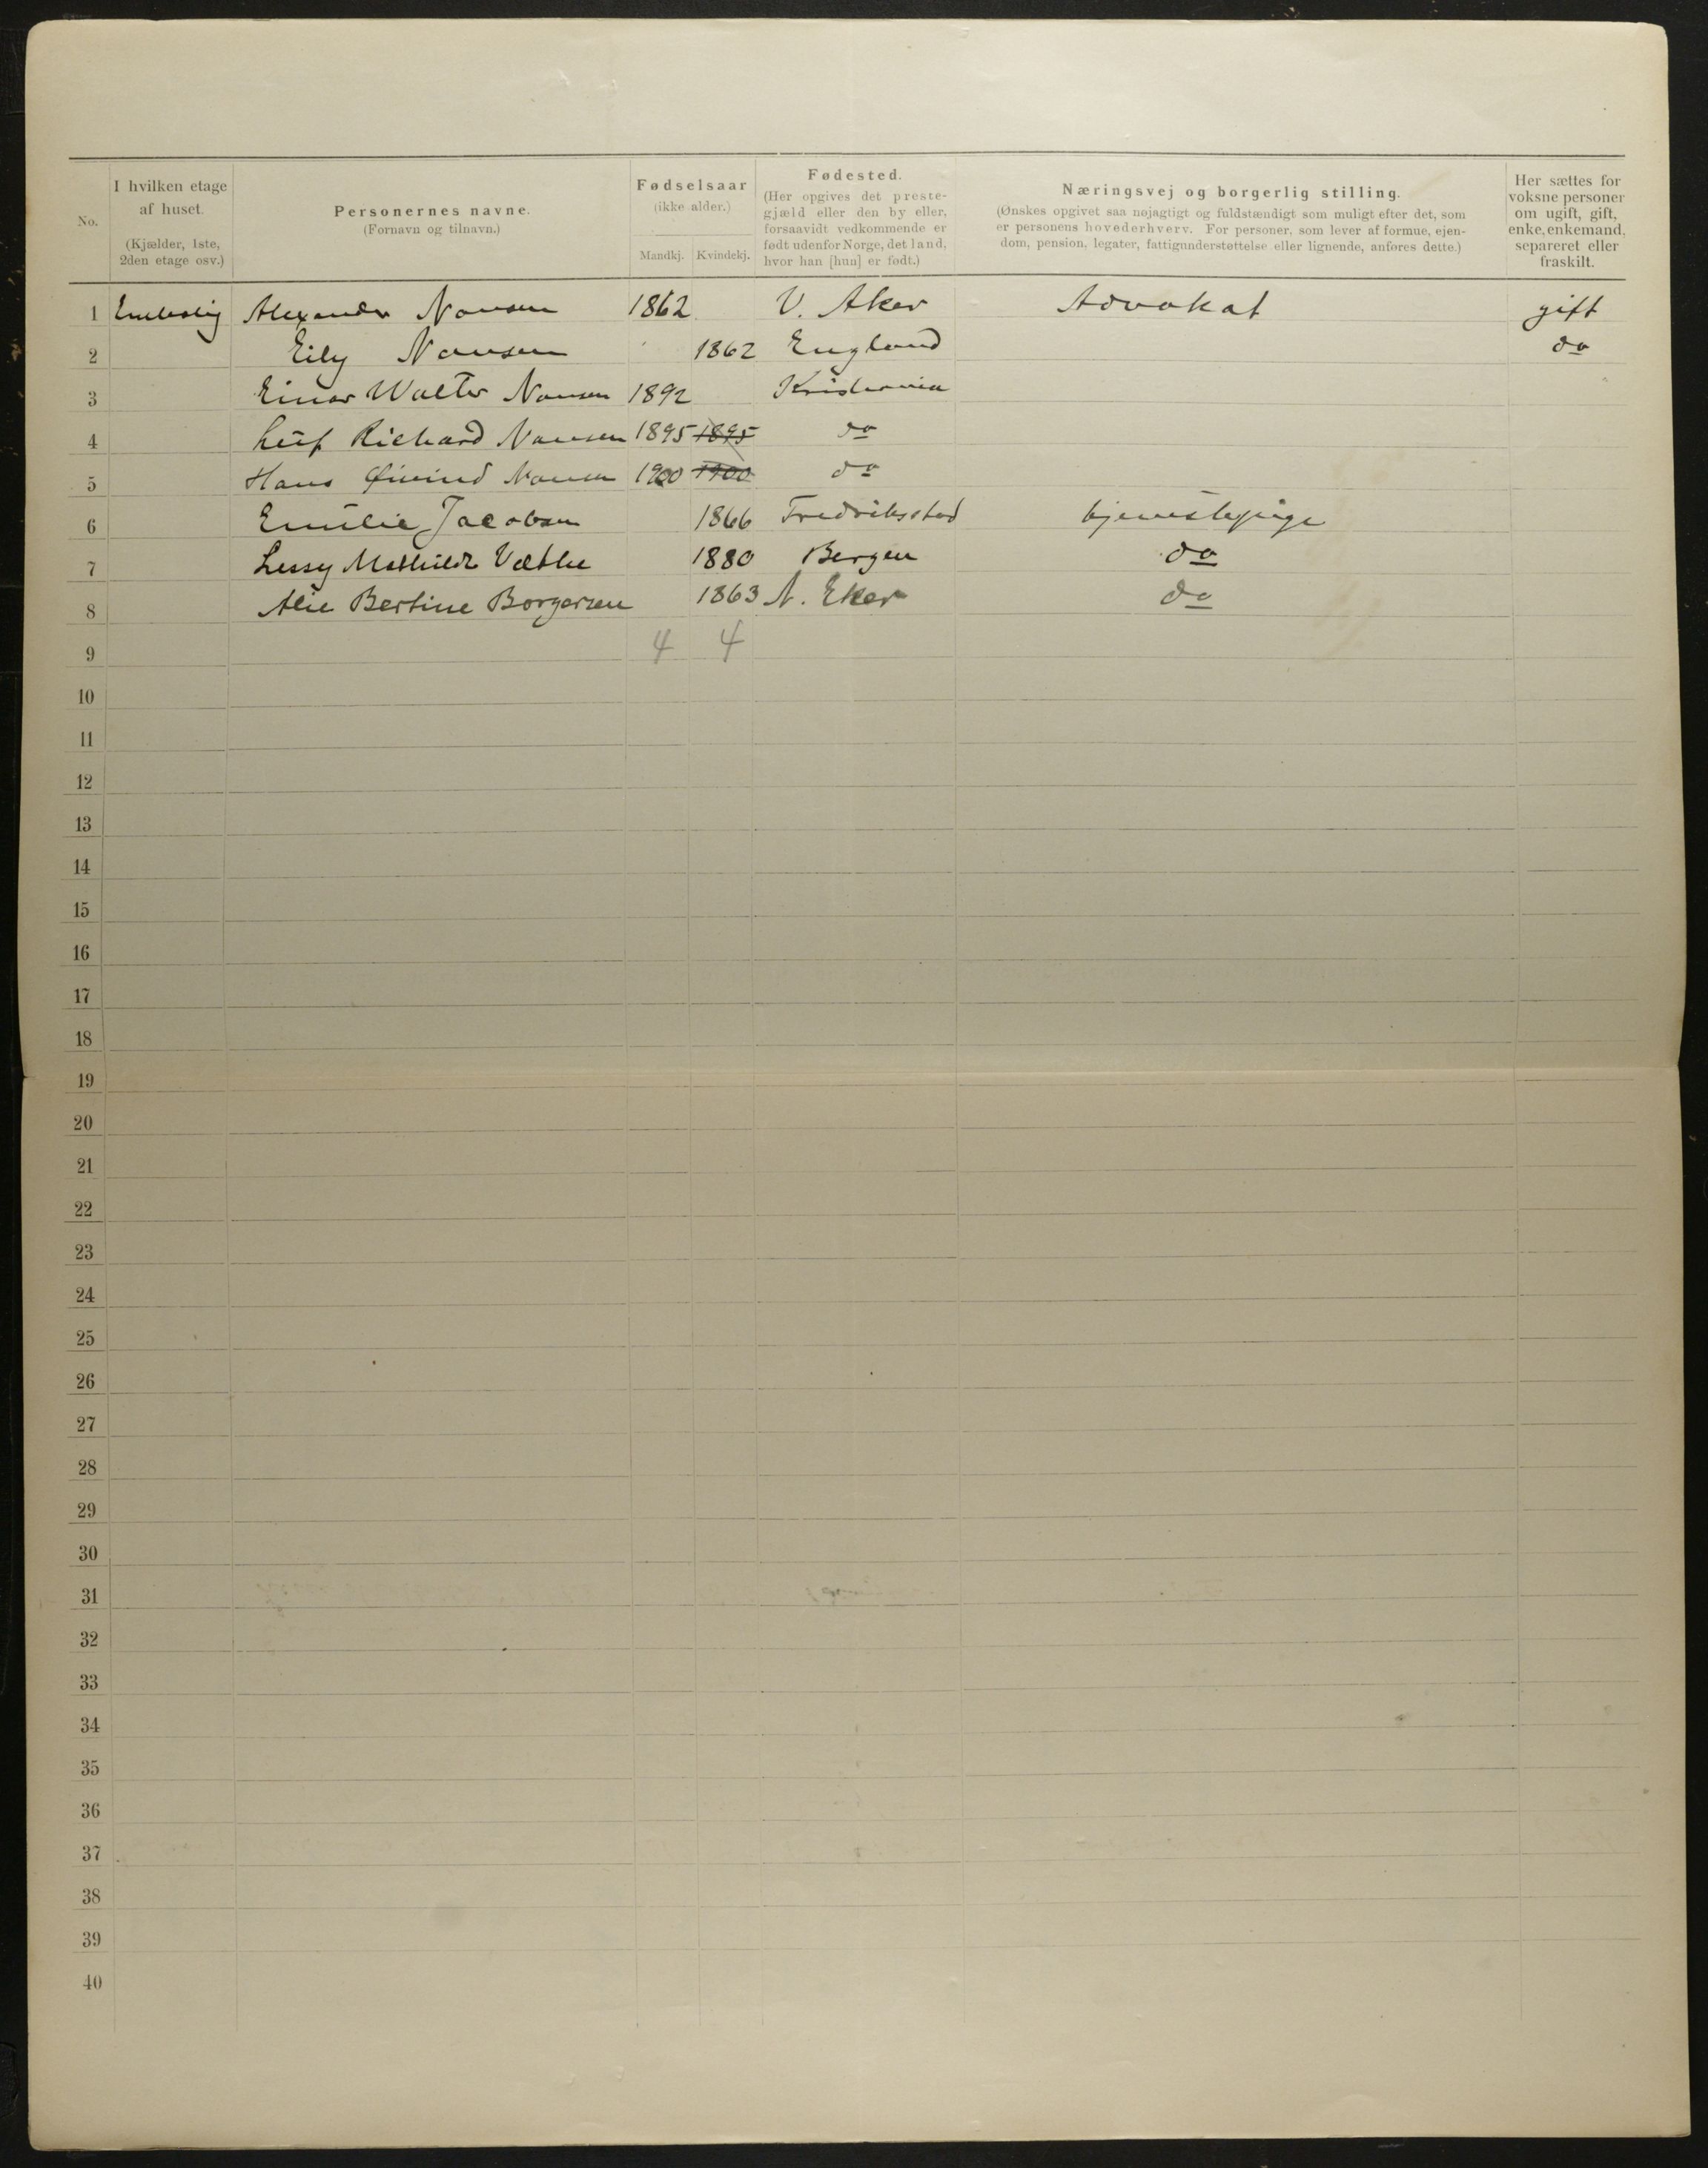 No.
I hvilken etage
af huset.
(Kjælder, 1ste,
2den etage osv.)
Personernes navne.
(Fornavn og tilnavn.)
Fødselsaar
(ikke alder.)
Mandkj. Kvindekj.
Fødested.
(Her opgives det preste-
gjæld eller den by eller,
forsaavidt vedkommende er
født udenfor Norge, det land,
hvor han [hun] er født.)
Næringsvej og borgerlig stilling.
(Ønskes opgivet saa nøjagtigt og fuldstændigt som muligt efter det, som
er personens hovederhverv. For personer, som lever af formue, ejen-
dom, pension, legater, fattigunderstøttelse eller lignende, anføres dette.)
Her sættes for
voksne personer
om ugift, gift,
enke, enkemand,
separeret eller
fraskilt.
1 Alexander Nansen 1862 V. Aker Advokat gift
2 Eily Nansen 1862 England do
3 Einar Walter Nansen 1892 Kristiania
4 Leif Richard Nansen 1895 1895 do
5 Hans Øivind Nansen 1900 1900 do
6 Emilie Jacobsen 1866 Fredriksstad tjenestepige
7 Mathilde 1880 Bergen do
8 Bertine Borgersen 1863 N. Eker do
9 4 4
10
11
12
13
14
15
16
17
18
19
20
21
22
23
24
25
26
27
28
29
30
31
32
33
34
35
36
37
38
39
40